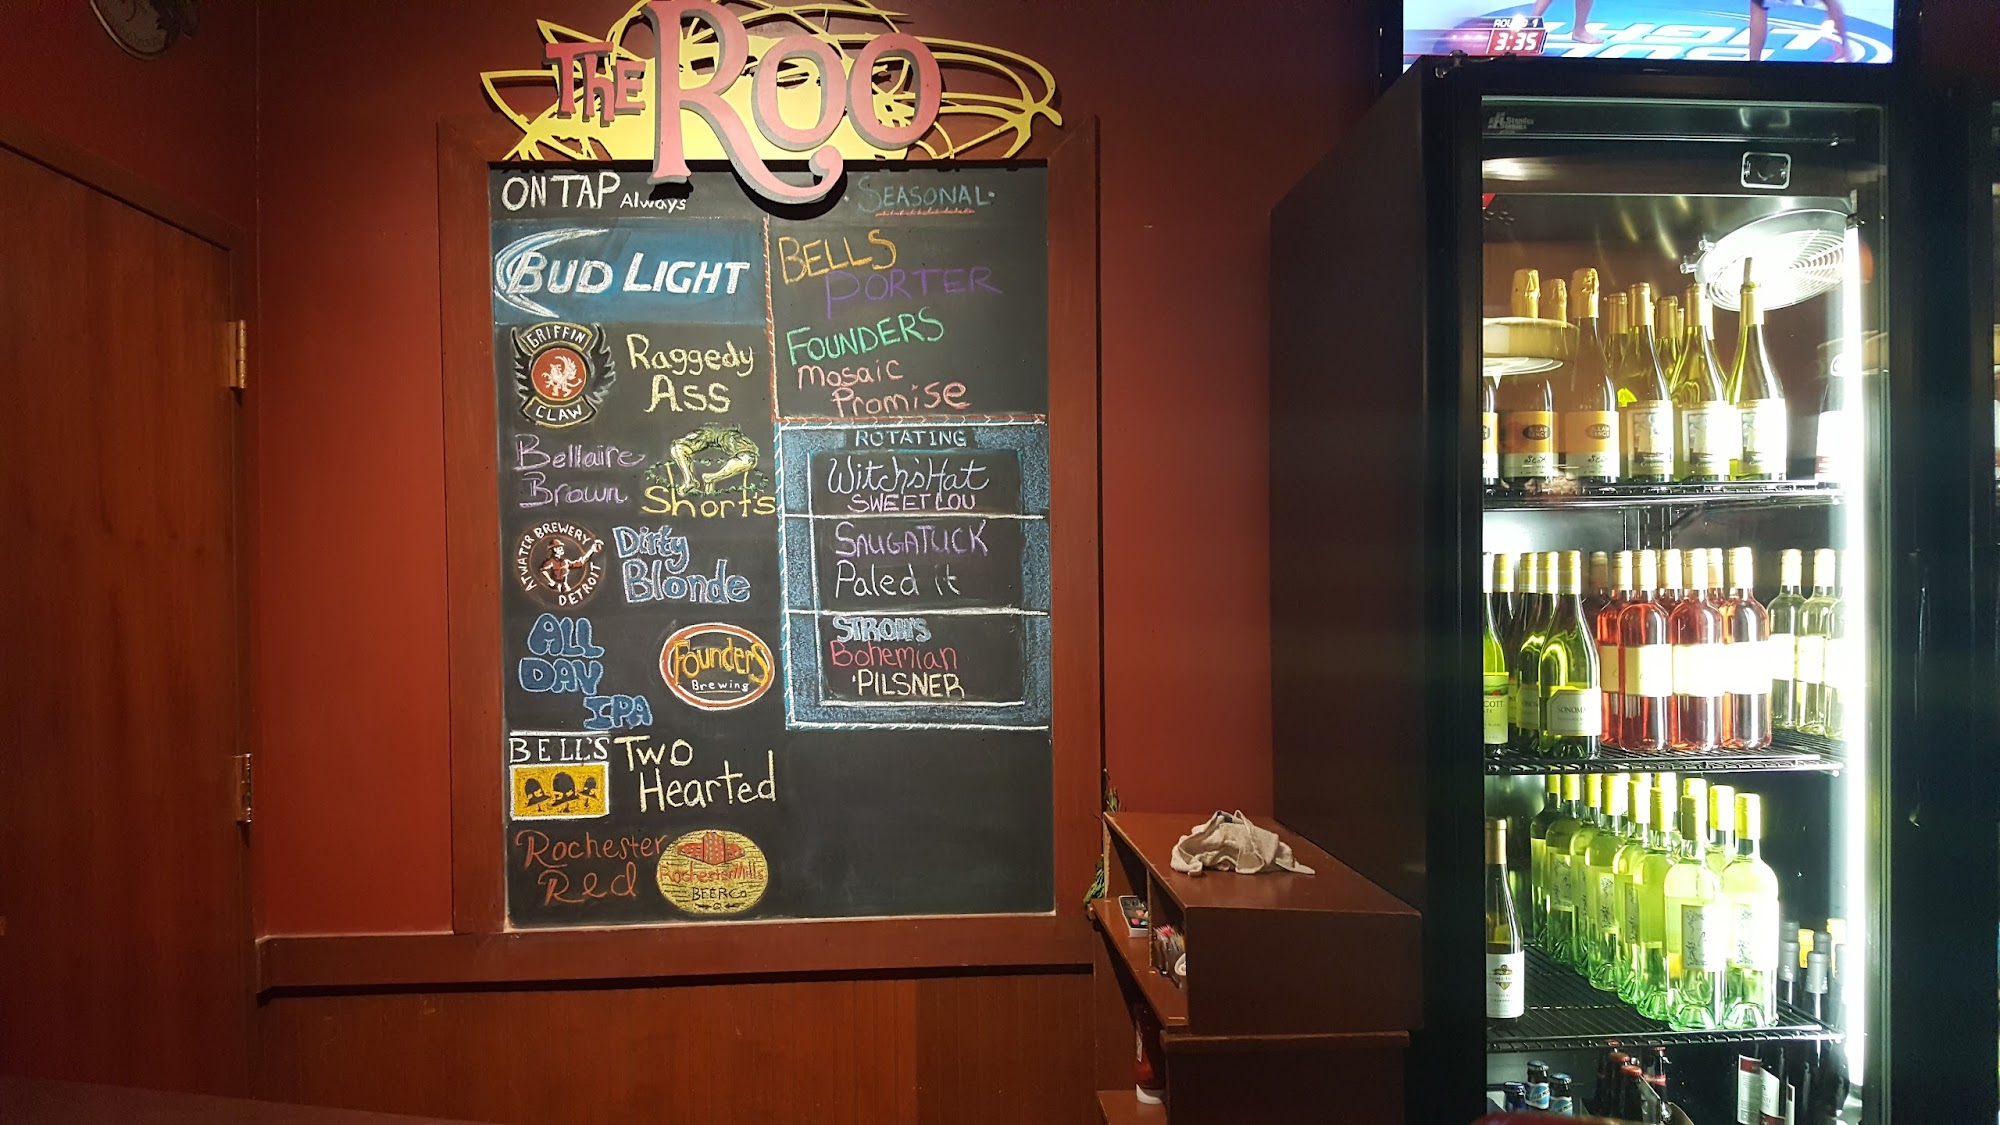 The Roo
ON TAP Always
BUD LIGHT
GRIFFIN
CLAW
Raggedy
Ass
Bellaire
Brown
Short's
ATWATER BREWERY
DETROIT
Dirty
Blonde
ALL
DAY
IPA
Founders
Brewing
BELL'S
Two
Hearted
Rochester
Red
Rochester Mills
BEER Co
· SEASONAL ·
BELLS
PORTER
FOUNDERS
Mosaic
Promise
ROTATING
Witch's Hat
SWEET LOU
SAUGATUCK
Paled it
STROH'S
Bohemian
PILSNER
ROUND 1
3:35
LIGHT
SONOMA